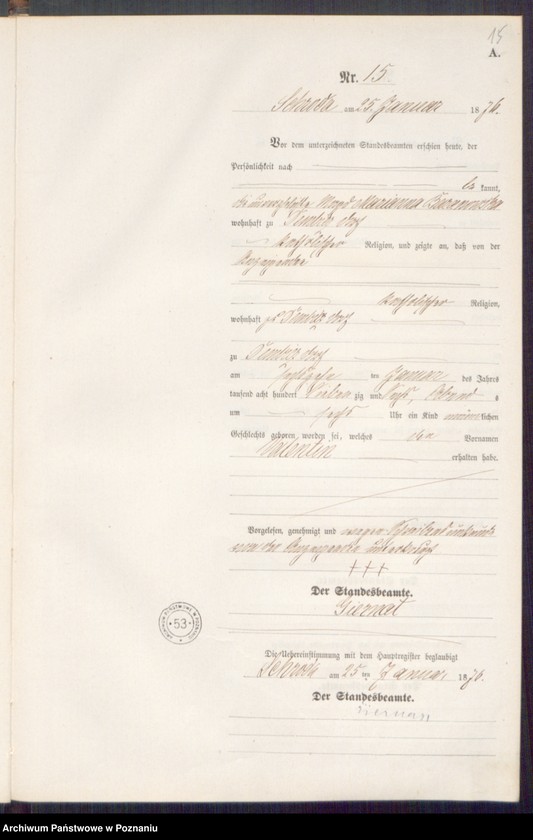 15
A.
Nr. 15.
Schroda am 25. Januar 1876.
Vor dem unterzeichneten Standesbeamten erschien heute, der
Persönlichkeit nach
be kannt,
die unverehelichte Magd Marianna
wohnhaft zu
katholischer Religion, und zeigte an, daß von der
Anzeigende
katholischer Religion,
wohnhaft
zu
am ten Januar des Jahres
tausend acht hundert sieben zig und sechs, Abend s
um sechs Uhr ein Kind männlichen
Geschlechts geboren worden sei, welches den Vornamen
Valentin erhalten habe.
Vorgelesen, genehmigt und wegen
von der unterkreuzt
+++
Der Standesbeamte.
ARCHIWUM PAŃSTWOWE W POZNANIU
53
Die Uebereinstimmung mit dem Hauptregister beglaubigt
Schroda am 25 ten Januar 1876.
Der Standesbeamte.
Archiwum Państwowe w Poznaniu